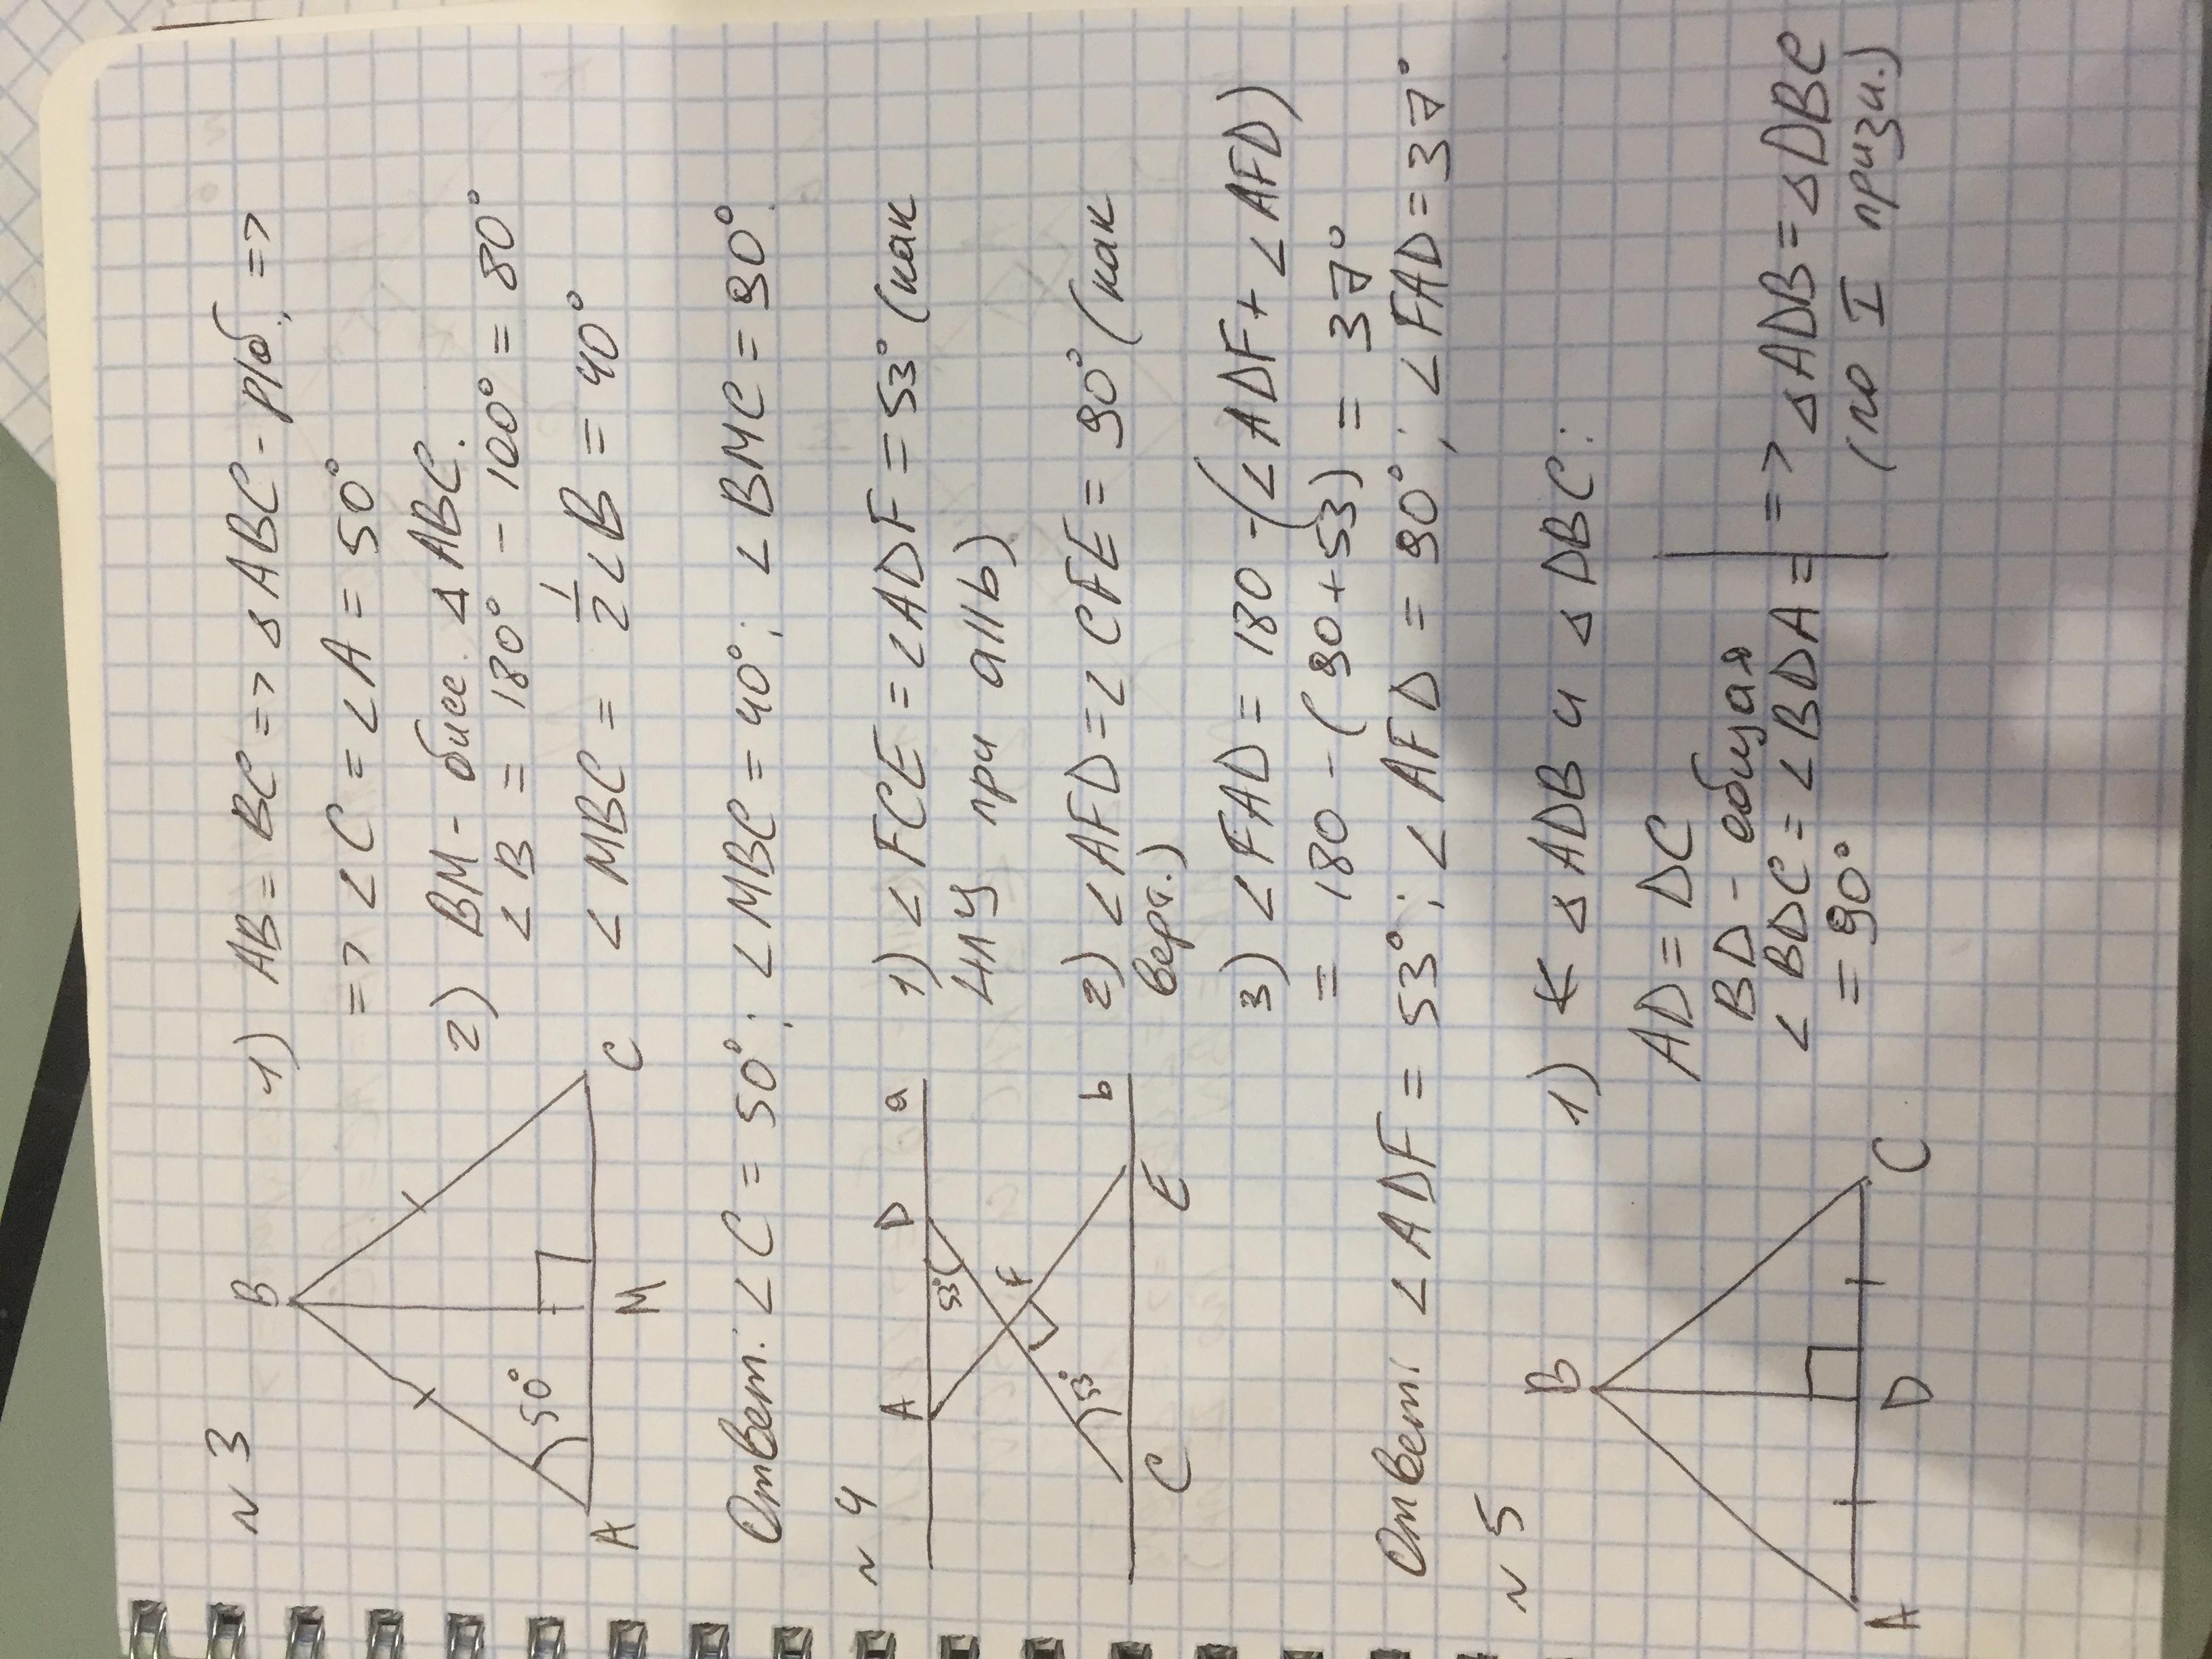 N 3
B
50°
A
M
C
1) AB = BC => ΔABC - р/б, =>
=> ∠C = ∠A = 50°
2) BM - бисс. ΔABC.
∠B = 180° - 100° = 80°
∠MBC = 1/2∠B = 40°
Ответ: ∠C = 50°; ∠MBC = 40°; ∠BMC = 90°.
N 4
A
D
a
53°
F
53°
C
E
b
1) ∠FCE = ∠ADF = 53° (как
НЛУ при a||b)
2) ∠AFD = ∠CFE = 90° (как
верт.)
3) ∠FAD = 180 - (∠ADF + ∠AFD)
= 180 - (90 + 53) = 37°
Ответ: ∠ADF = 53°; ∠AFD = 90°; ∠FAD = 37°
N 5
B
A
D
C
1) ΔADB и ΔDBC:
AD = DC
BD - общая
∠BDC = ∠BDA =
= 90°
=> ΔADB = ΔDBC
(по I призн.)